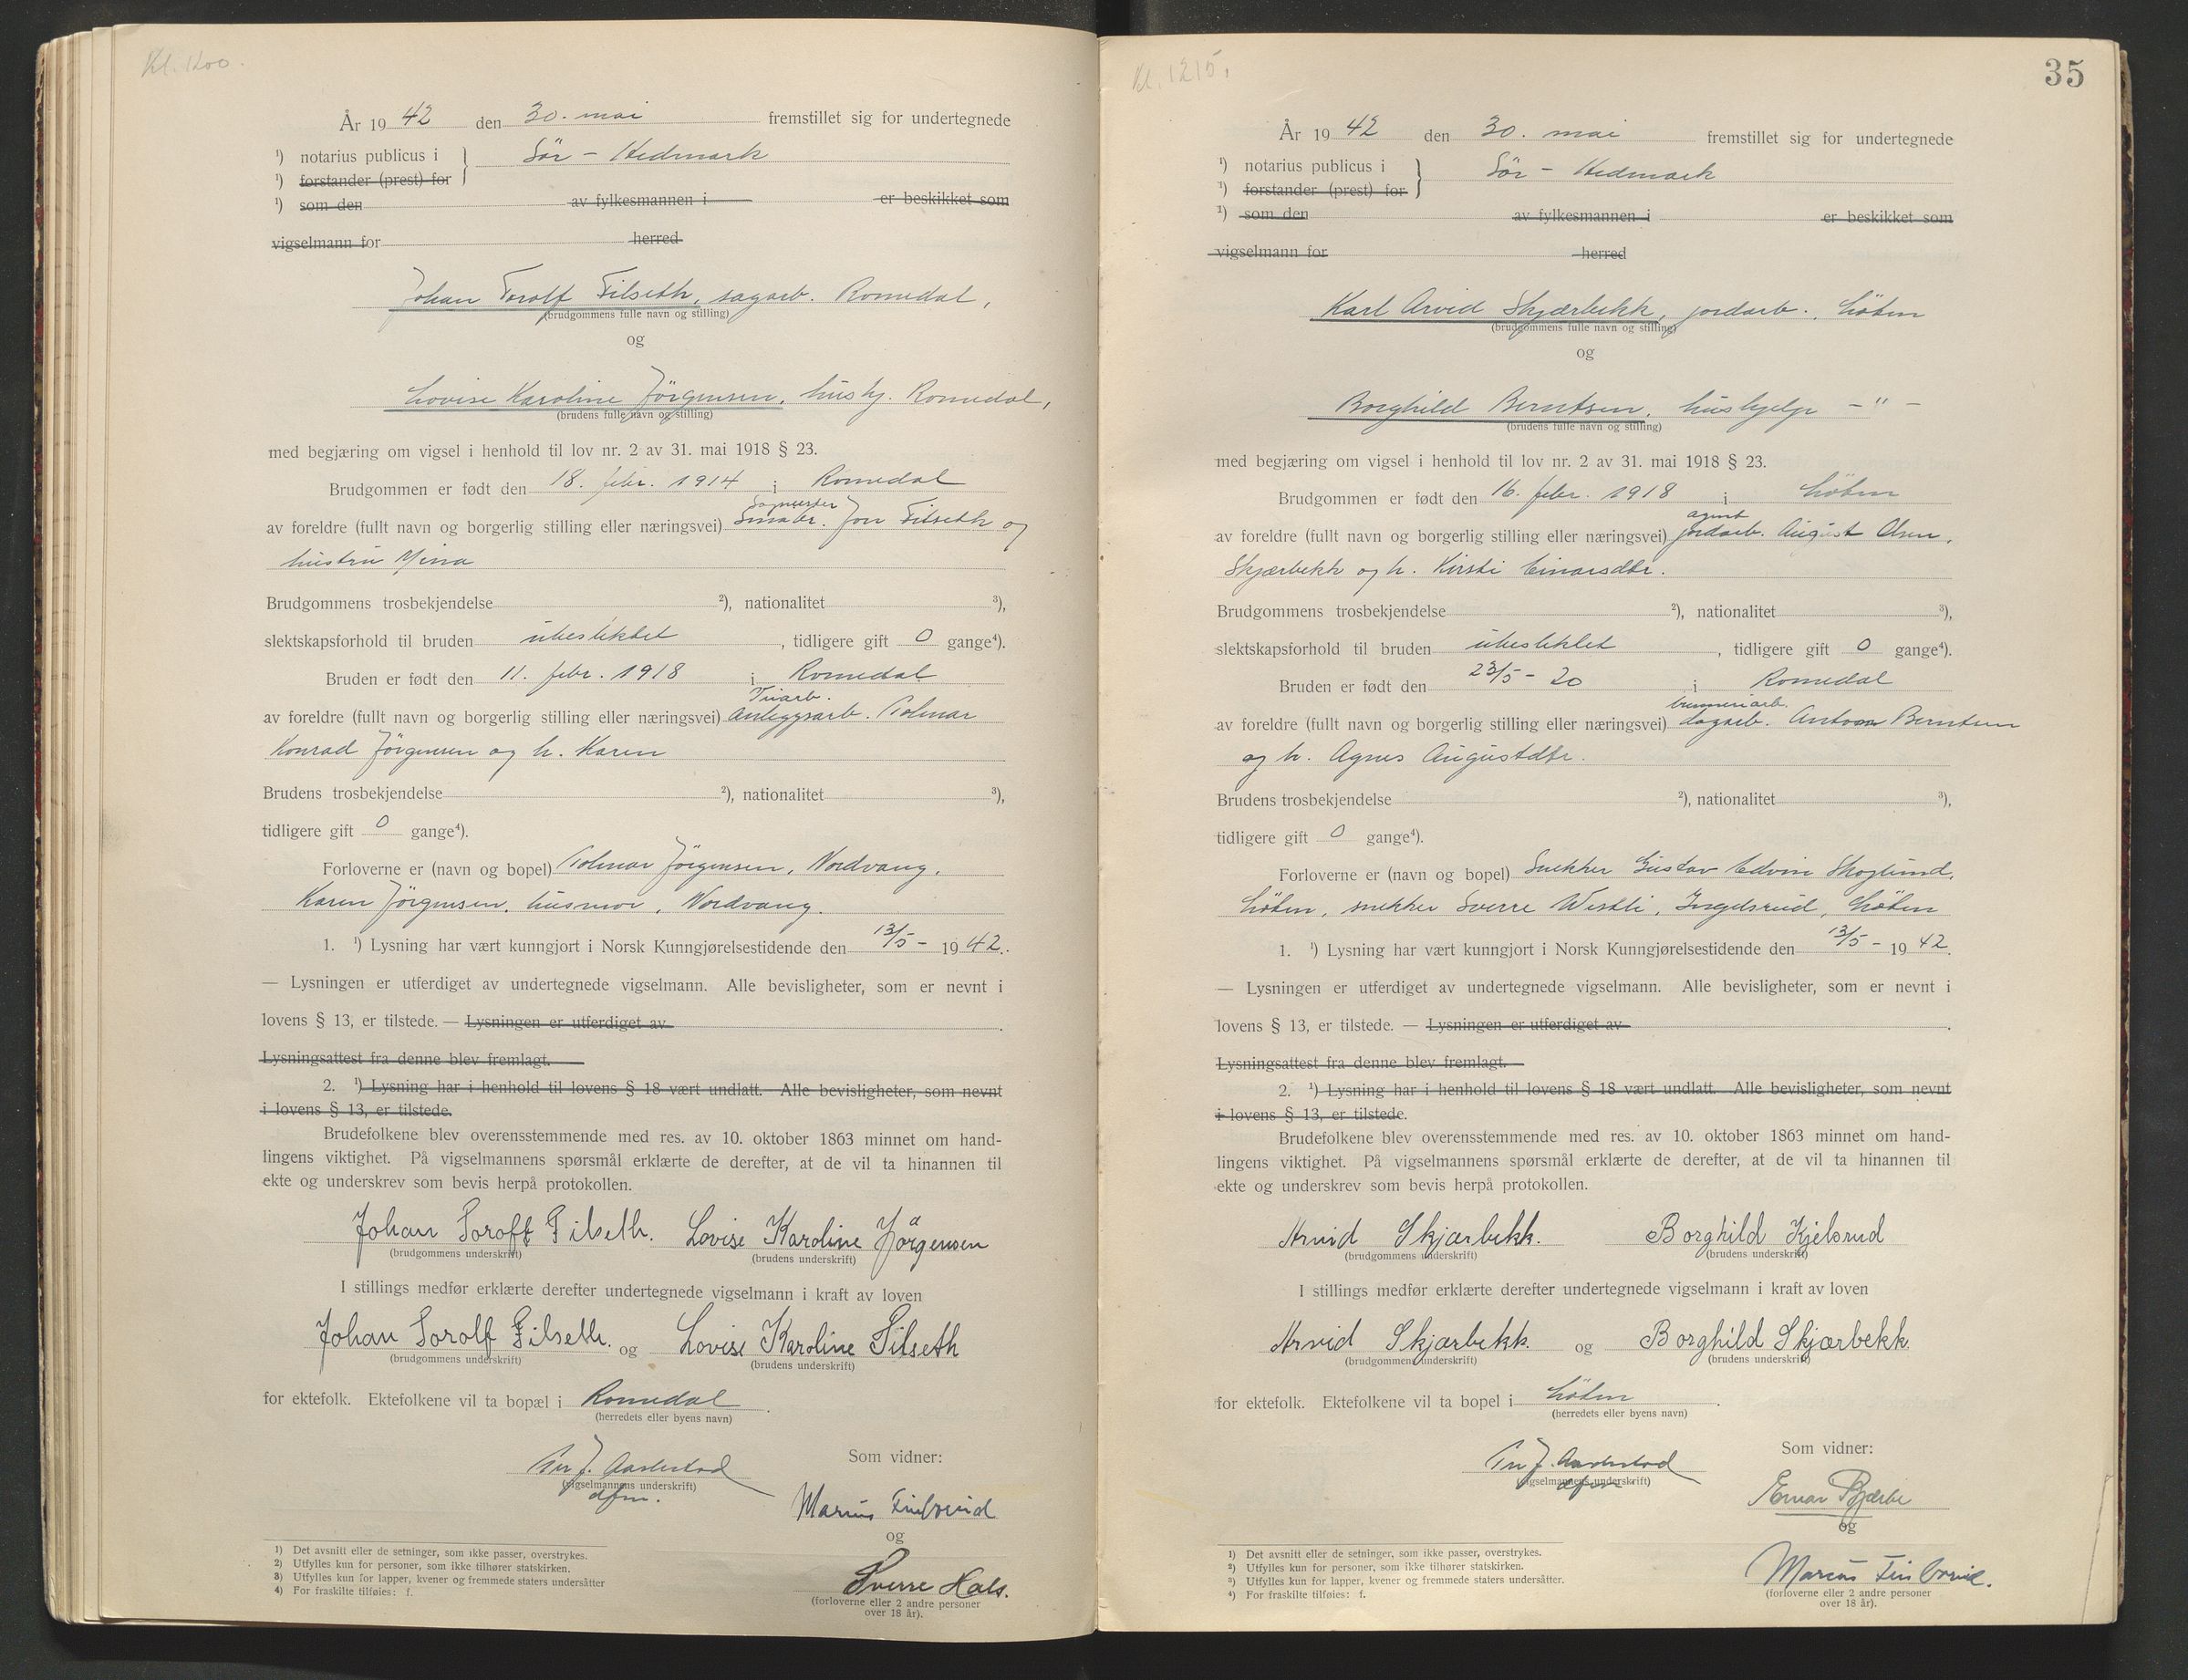 Kl. 1200.
År 19 42 den 30. mai fremstillet sig for undertegnede
¹) notarius publicus i } Sör - Hedmark
¹) forstander (prest) for
¹) som den av fylkesmannen i er beskikket som
vigselmann for herred
Johan Torolf Tilseth, sagarb. Romedal,
(brudgommens fulle navn og stilling)
og
Lovise Karoline Jörgensen, hushj. Romedal,
(brudens fulle navn og stilling)
med begjæring om vigsel i henhold til lov nr. 2 av 31. mai 1918 § 23.
Brudgommen er født den 18. febr. 1914 i Romedal
Sagmester
av foreldre (fullt navn og borgerlig stilling eller næringsvei) Småbr. Jon Tilseth og
hustru Mina
Brudgommens trosbekjendelse ²), nationalitet ³),
slektskapsforhold til bruden ubeslektet, tidligere gift 0 gange⁴).
Bruden er født den 11. febr. 1918 i Romedal
av foreldre (fullt navn og borgerlig stilling eller næringsvei) Anleggsarb. Tolmar
Konrad Jörgensen og h. Karen
Brudens trosbekjendelse ²), nationalitet ³),
tidligere gift 0 gange⁴).
Forloverne er (navn og bopel) Tolmar Jörgensen, Nordvang,
Karen Jörgensen, husmor, Nordvang.
1. ¹) Lysning har vært kunngjort i Norsk Kunngjørelsestidende den 13/5 - 19 42.
— Lysningen er utferdiget av undertegnede vigselmann. Alle bevisligheter, som er nevnt i
lovens § 13, er tilstede. — Lysningen er utferdiget av
Lysningsattest fra denne blev fremlagt.
2. ¹) Lysning har i henhold til lovens § 18 vært undlatt. Alle bevisligheter, som nevnt
i lovens § 13, er tilstede.
Brudefolkene blev overensstemmende med res. av 10. oktober 1863 minnet om hand-
lingens viktighet. På vigselmannens spørsmål erklærte de derefter, at de vil ta hinannen til
ekte og underskrev som bevis herpå protokollen.
Johan Toroff Tilseth. Lovise Karoline Jörgensen
(brudgommens underskrift) (brudens underskrift)
I stillings medfør erklærte derefter undertegnede vigselmann i kraft av loven
Johan Torolf Tilseth. og Lovise Karoline Tilseth
(brudgommens underskrift) (brudens underskrift)
for ektefolk. Ektefolkene vil ta bopæl i Romedal.
(herredets eller byens navn)
Per J. Aarlestad
(vigselmannens underskrift)
dfm.
Som vidner:
Marius Finborud
og
Sverre Hals.
(forloverne eller 2 andre personer
over 18 år).
1) Det avsnitt eller de setninger, som ikke passer, overstrykes.
2) Utfylles kun for personer, som ikke tilhører statskirken.
3) Utfylles kun for lapper, kvener og fremmede staters undersåtter
4) For fraskilte tilføies: f.
Kl. 1215.
35
År 19 42 den 30. mai fremstillet sig for undertegnede
¹) notarius publicus i } Sör - Hedmark
¹) forstander (prest) for
¹) som den av fylkesmannen i er beskikket som
vigselmann for herred
Karl Arvid Skjærbekk, jordarb., Löten
(brudgommens fulle navn og stilling)
og
Borghild Berntsen, hushjelp - " -
(brudens fulle navn og stilling)
med begjæring om vigsel i henhold til lov nr. 2 av 31. mai 1918 § 23.
Brudgommen er født den 16. febr. 1918 i Löten
agent
av foreldre (fullt navn og borgerlig stilling eller næringsvei) jordarb. August Olsen,
Skjærbekk og h. Kirsti Einarsdtr.
Brudgommens trosbekjendelse ²), nationalitet ³),
slektskapsforhold til bruden ubeslektet, tidligere gift 0 gange⁴).
Bruden er født den 23/5 - 20 i Romedal
brenneriarb.
av foreldre (fullt navn og borgerlig stilling eller næringsvei) dagarb. Anton Berntsen
og h. Agnes Augustdtr.
Brudens trosbekjendelse ²), nationalitet ³),
tidligere gift 0 gange⁴).
Forloverne er (navn og bopel) Snekker Gustav Edvin Skoglund,
Löten, snekker Sverre Westli, Ingelsrud, Löten
1. ¹) Lysning har vært kunngjort i Norsk Kunngjørelsestidende den 13/5 - 19 42.
— Lysningen er utferdiget av undertegnede vigselmann. Alle bevisligheter, som er nevnt i
lovens § 13, er tilstede. — Lysningen er utferdiget av.
Lysningsattest fra denne blev fremlagt.
2. ¹) Lysning har i henhold til lovens § 18 vært undlatt. Alle bevisligheter, som nevnt
i lovens § 13, er tilstede.
Brudefolkene blev overensstemmende med res. av 10. oktober 1863 minnet om hand-
lingens viktighet. På vigselmannens spørsmål erklærte de derefter, at de vil ta hinannen til
ekte og underskrev som bevis herpå protokollen.
Arvid Skjærbekk. Borghild Kjelsrud
(brudgommens underskrift) (brudens underskrift)
I stillings medfør erklærte derefter undertegnede vigselmann i kraft av loven
Arvid Skjærbekk. og Borghild Skjærbekk.
(brudgommens underskrift) (brudens underskrift)
for ektefolk. Ektefolkene vil ta bopel i Löten.
(herredets eller byens navn)
Per J. Aarlestad
(vigselmannens underskrift)
dfm
Som vidner:
og
Marius Finborud.
(forloverne eller 2 andre personer
over 18 år).
¹) Det avsnitt eller de setninger, som ikke passer, overstrykes.
²) Utfylles kun for personer, som ikke tilhører statskirken.
³) Utfylles kun for lapper, kvener og fremmede staters undersåtter.
⁴) For fraskilte tilføies: f.